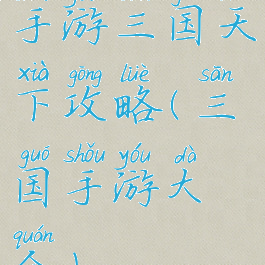 手游三国天
xià gōng lüè sān
下攻略(三
guō shǒu yóu dà
国手游大
quán
全)